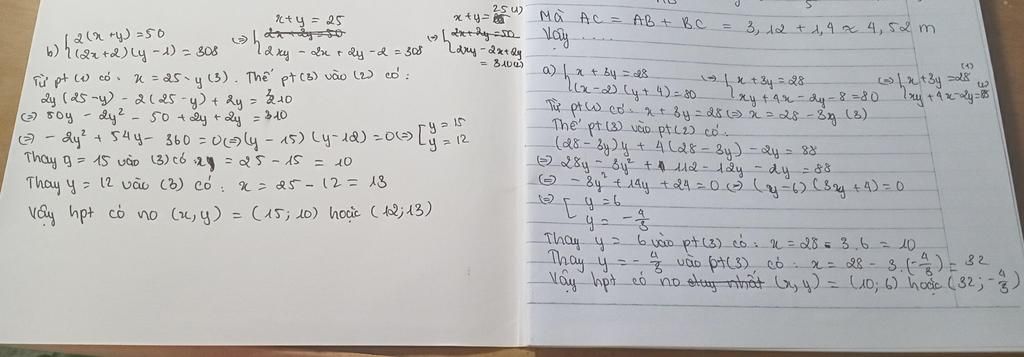 b) { 2(x+y)=50
(2x+2)(y-1)=308
(=) { x+y = 25
2xy - 2x + 2y - 2 = 308
(=) { x+y = 25 (1)
2xy - 2x + 2y = 310 (2)
Từ pt (1) có: x = 25 - y (3). Thế pt(3) vào (2) có:
2y(25-y) - 2(25-y) + 2y = 310
(=) 50y - 2y² - 50 + 2y + 2y = 310
(=) -2y² + 54y - 360 = 0 (=) (y-15)(y-12) = 0 (=) [ y = 15
y = 12
Thay y = 15 vào (3) có x = 25 - 15 = 10
Thay y = 12 vào (3) có: x = 25 - 12 = 13
Vậy hpt có no (x,y) = (15;10) hoặc (12;13)
Mà AC = AB + BC = 3,12 + 1,4 ≈ 4,52 m
Vậy ....
a) { x + 3y = 28
(x-2)(y+4) = 80
(=) { x + 3y = 28
xy + 4x - 2y - 8 = 80
(=) { x + 3y = 28 (1)
xy + 4x - 2y = 88 (2)
Từ pt(1) có: x + 3y = 28 (=) x = 28 - 3y (3)
Thế pt(3) vào pt(2) có:
(28 - 3y)y + 4(28 - 3y) - 2y = 88
(=) 28y - 3y² + 112 - 12y - 2y = 88
(=) -3y² + 14y + 24 = 0 (=) (y-6)(3y+4) = 0
(=) [ y = 6
y = -4/3
Thay y = 6 vào pt(3) có: x = 28 - 3.6 = 10
Thay y = -4/3 vào pt(3) có: x = 28 - 3.(-4/3) = 32
Vậy hpt có no duy nhất (x,y) = (10;6) hoặc (32; -4/3)